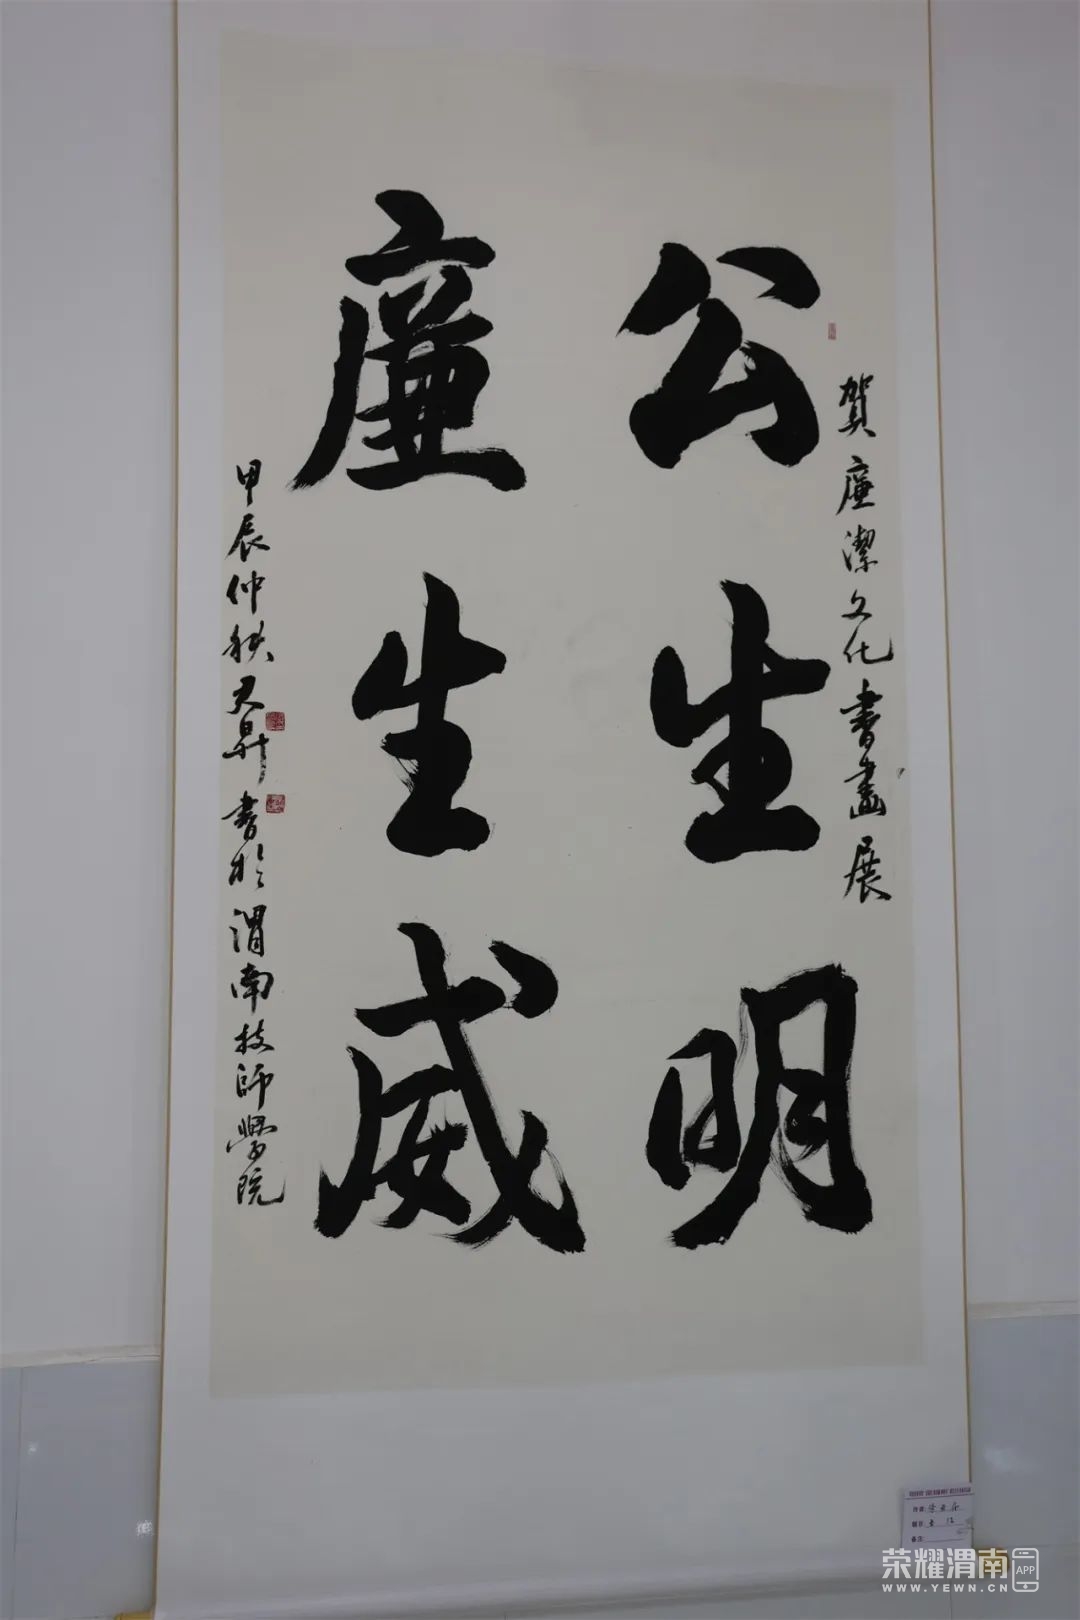 賀廉潔文化書畫展
公生明
廉生威
甲辰仲秋天昇書於渭南技師學院
作者:
题目:
备注:
荣耀渭南 APP
WWW.YEWN.CN